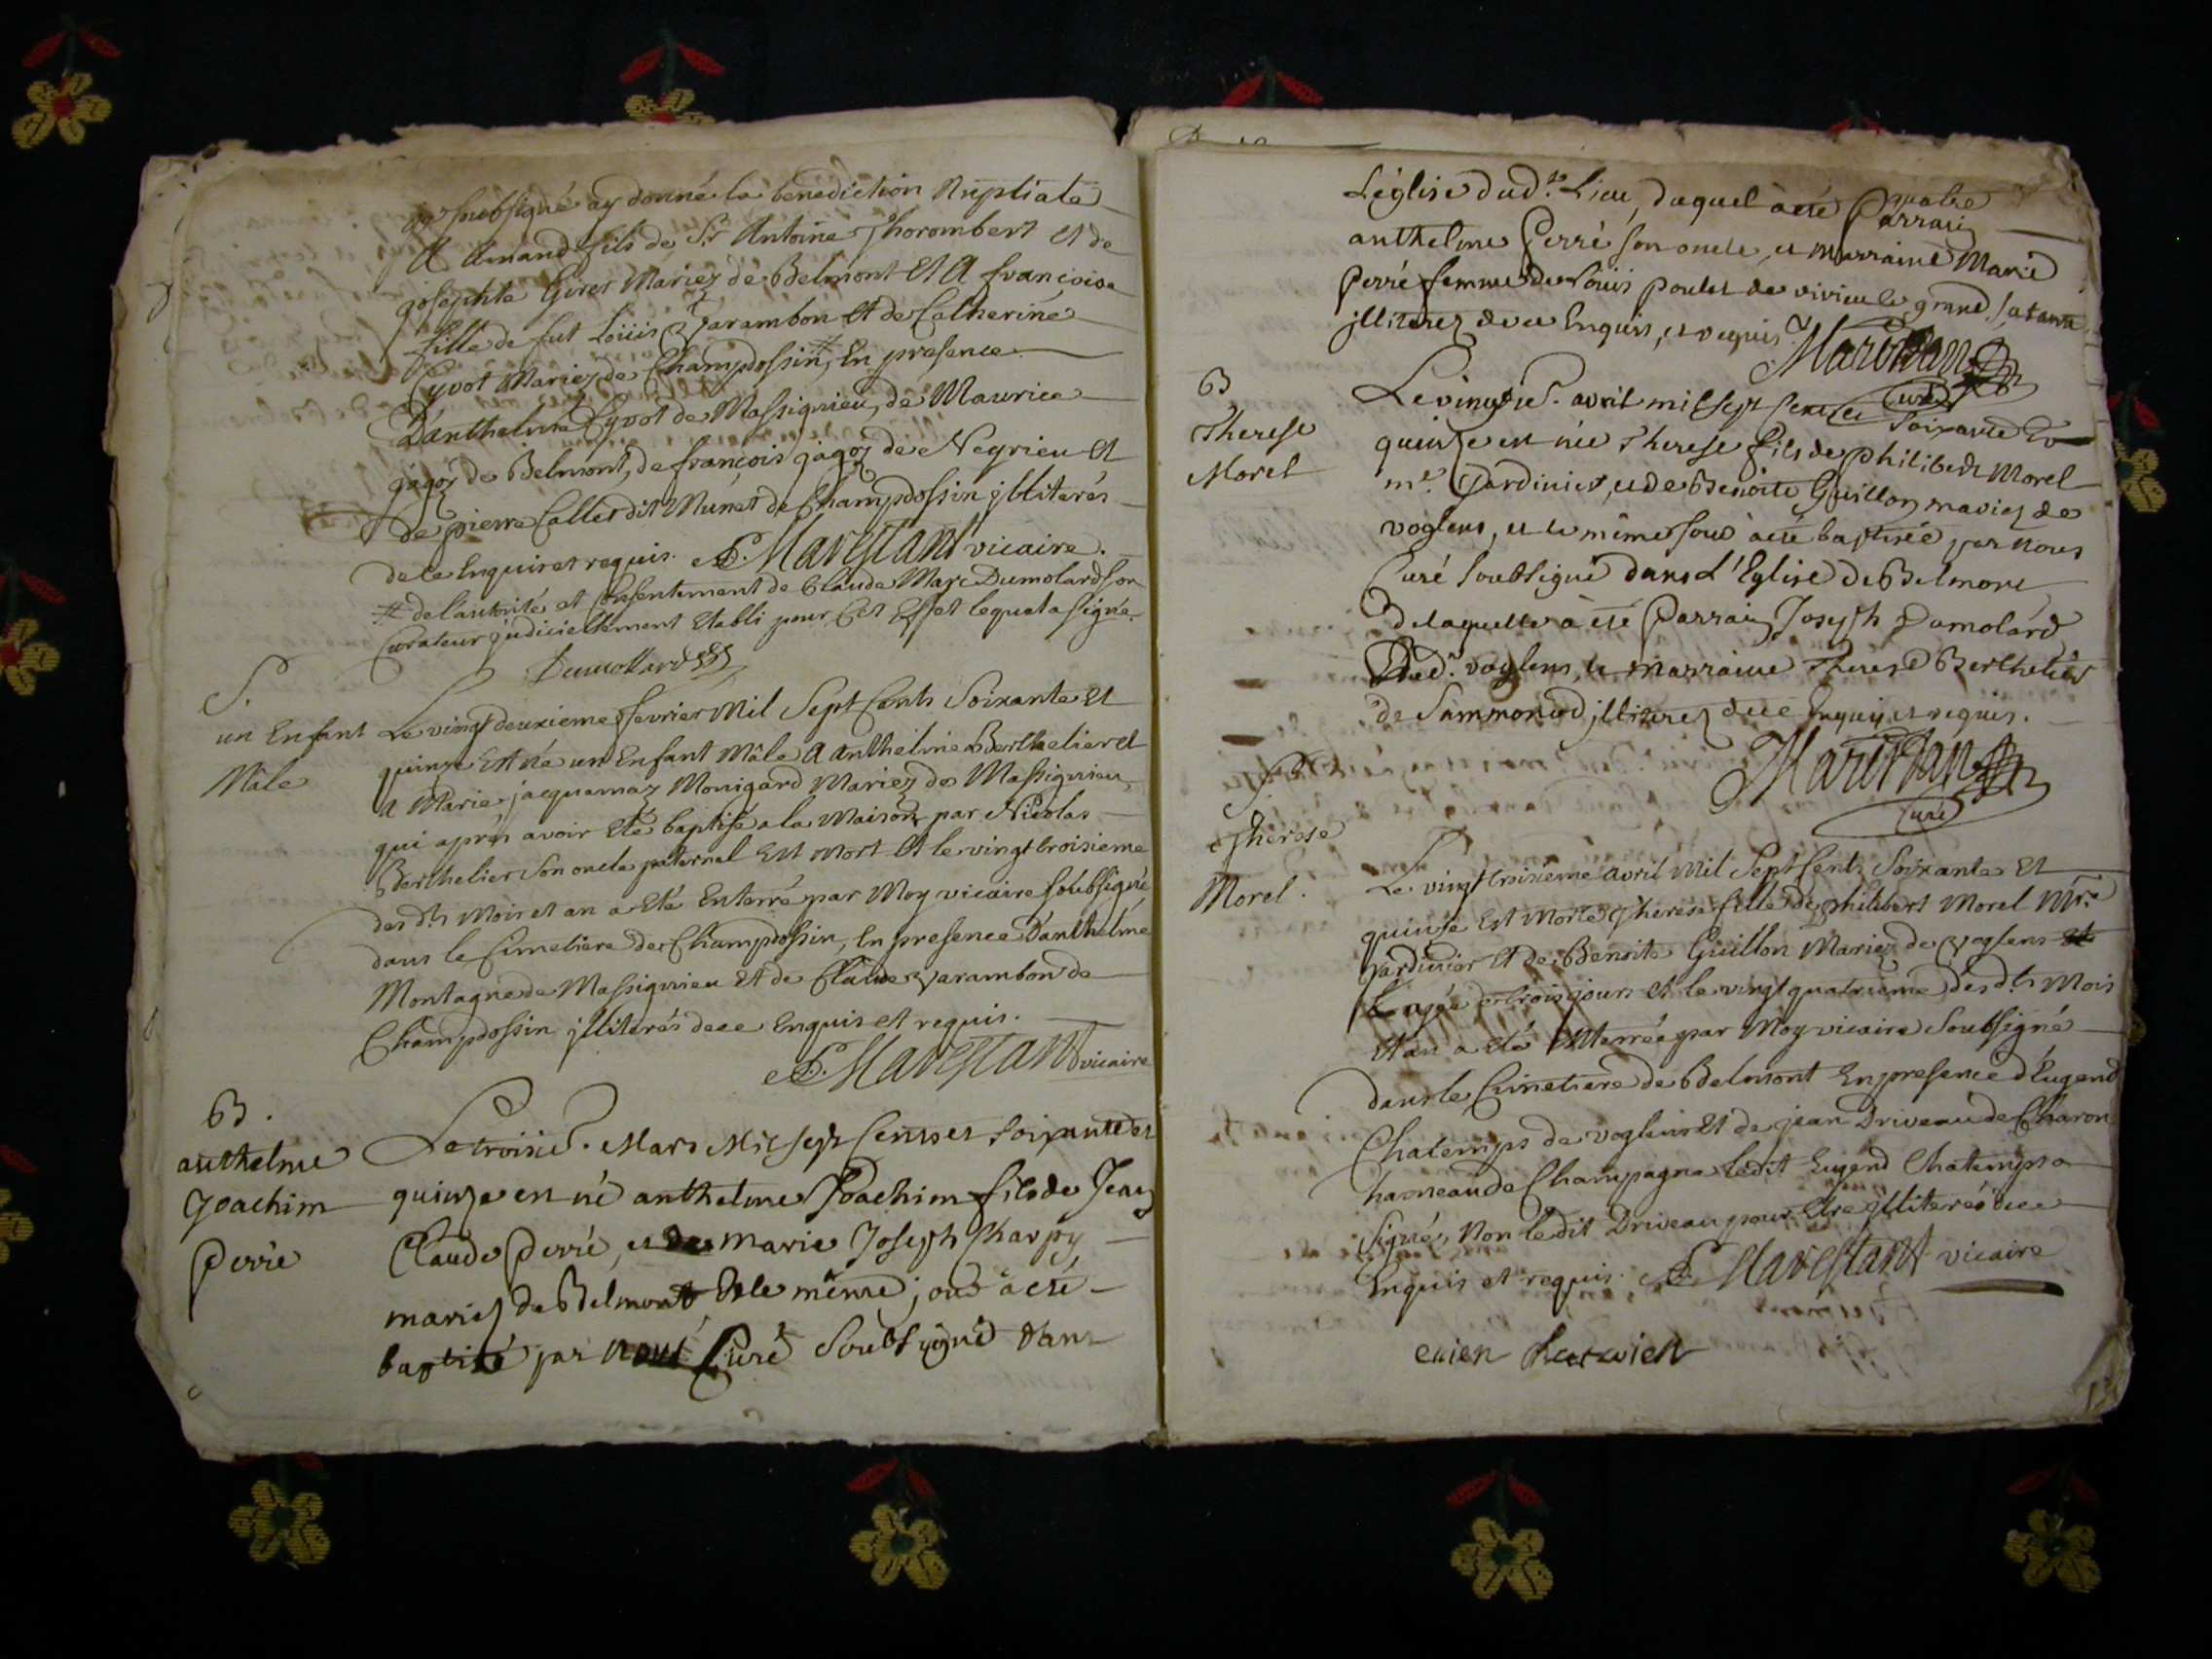 soubsigné ay donné la benediction Nuptiale
A Amand fils de Sr Antoine Jhorombert et de
josephte Giret Mariez de Belmont Et A françoise
fille de fut Loüis Varambon Et de Catherine
Cyvot Mariez de Champdossin,# En presence
D'anthelme Cyvot de Massignieu, de Maurice
gagoz de Belmont, de francois gagoz de Neyrieu et
de pierre Collet dit Munet de Champdossin jlliterés
de ce Enquis et requis. Marestant vicaire.
# de l'autorité et Consentement de Claude Marc Dumolard son
Curateur judiciellement Etabli pour Cet Effet lequel a signé.
Dumollard
S.
un Enfant
Mâle
Le vingt deuxieme fevrier Mil Sept Cents Soixante Et
quinze Est né un Enfant Mâle A Anthelme Berthelier et
A Marie jacquemaz Monigard Mariez de Massignieu,
qui aprés avoir Eté baptisé a la Maison par Nicolas
Berthelier Son oncle paternel Est Mort Et le vingt troisieme
des dts Mois et an a Eté Enterré par Moy vicaire soubsigné
dans le Cimetiere de Champdossin, En presence D'anthelme
Montagne de Massignieu Et de Claude Varambon de
Champdossin jlliterés de ce Enquis et requis.
Marestant vicaire
B.
anthelme
Joachim
perré
Le troisie. Mars Mil sept Cents et soixante et
quinze est né anthelme Joachim fils de Jean
Claude perré, et de marie Joseph Charpy
mariez de Belmont, Et le même jour à eté
baptisé par nous Curé Soubsigné dans
L'église dud.t Lieu, duquel à eté Parrain
anthelme Perré son oncle, et marraine Marie
perré femme de Loüis poulet de virieu le grand,
jlliterez de ce Enquis, et requis.
Marestan
Curé
B
Therese
Morel
Le vingtie. avril mil sept Cents et Soixante Et
quinze est née Therese fils de philibert Morel
me. Jardinier, et de Benoite Guillon mariez de
voglens, et le même jour à eté baptisée par nous
Curé Soubsigné dans L'Eglise de Belmont
De laquelle à eté Parrain Joseph Dumolard
Dud.t voglens, et marraine Therese Berthelier
de Sammonod jlliterez de ce Enquis et requis.
Marestan
Curé
S.
Therese
Morel.
Le vingt troisieme avril Mil Sept Cents Soixante Et
quinse Est Morte Therese fille de philibert Morel Mre
jardinier Et de Benoite Guillon Mariez de voglens
agée de trois jours Et le vingt quatrieme des dts Mois
Et an a eté Enterrée par Moy vicaire Soubsigné
dans le Cimetiere de Belmont En presence d'Eugend
Chatemps de voglens Et de jean Driveau de Charon
hameau de Champagne ledit Eugend Chatemps a
signé, Non ledit Driveau pour Etre jlliteré de ce
Enquis et requis. Marestant vicaire